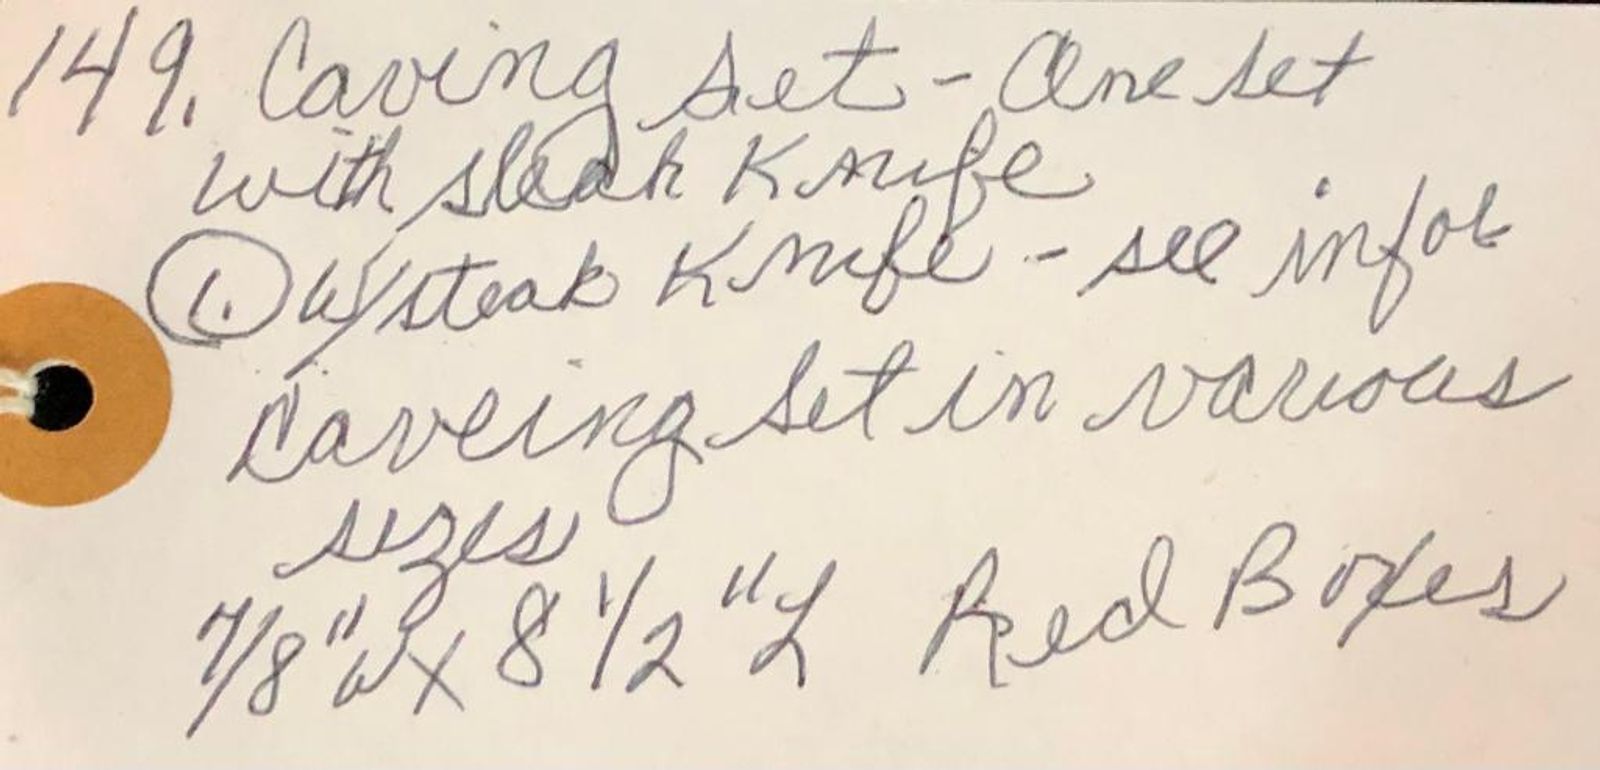 149. Caving set - One set
with steak Knife
1. w/steak Knife - see info
Caveing set in various
sizes
7/8"w x 8 1/2"L Red Boxes